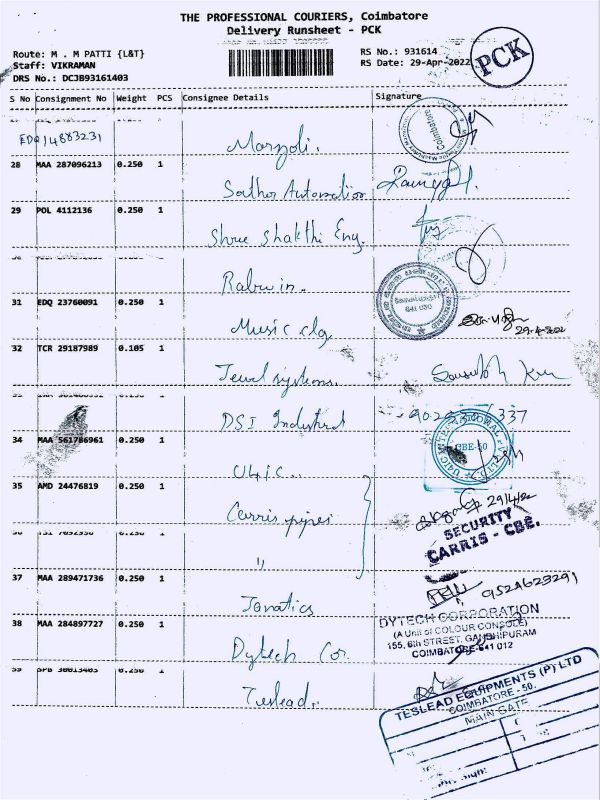 THE PROFESSIONAL COURIERS, Coimbatore
Delivery Runsheet - PCK
Route: M . M PATTI {L&T}
RS No.: 931614
Staff: VIKRAMAN
RS Date: 29-Apr-2022
DRS No.: DCJB93161403
PCK
S No Consignment No Weight PCS Consignee Details Signature
EDQ14883231
Coimbatore
28 MAA 287096213 0.250 1
29 POL 4112136 0.250 1
Shree Shakthi Eng.
31 EDQ 23760091 0.250 1
Music clg
29-4-2022
32 TCR 29187989 0.105 1
Jewel systems.
DSI Industrial
34 MAA 561786961 0.250 1
CBE-50
U4ic..
35 AMD 24476819 0.250 1
Carris pipes
29/4/22
SECURITY
CARRIS - CBE.
"
37 MAA 289471736 0.250 1
9524623291
Janatics
38 MAA 284897727 0.250 1
DYTECH CORPORATION
(A Unit of COLOUR CONSOLE)
155, 6th STREET, GANDHIPURAM
COIMBATORE-641 012
Dytech Cor.
Teslead..
TESLEAD EQUIPMENTS (P) LTD
COIMBATORE - 50.
MAIN GATE